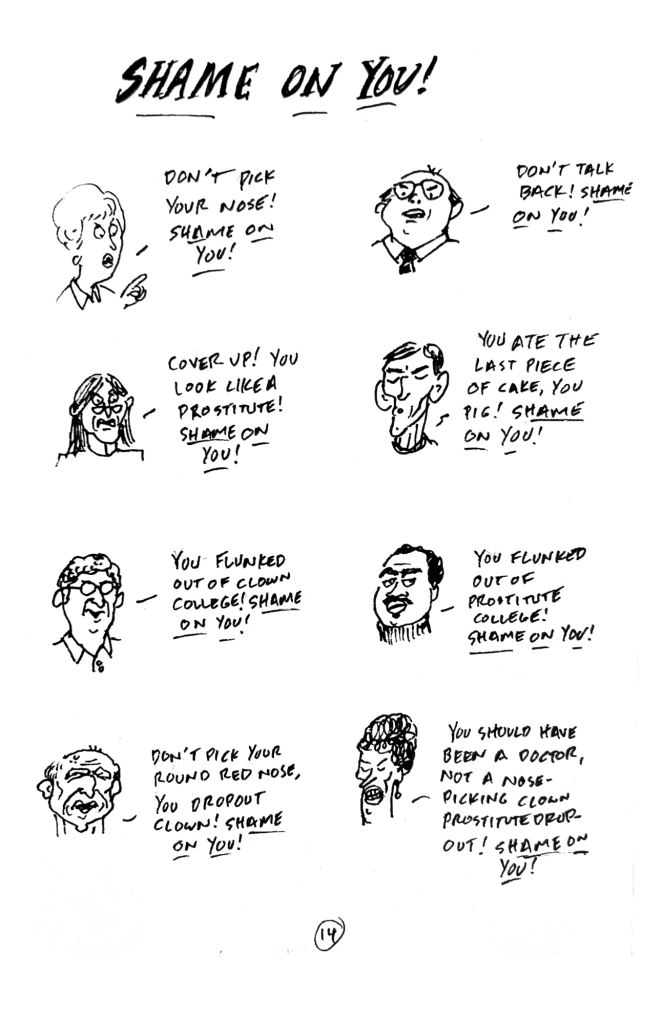 SHAME ON YOU!
DON'T PICK
YOUR NOSE!
SHAME ON
YOU!
DON'T TALK
BACK! SHAME
ON YOU!
COVER UP! YOU
LOOK LIKE A
PROSTITUTE!
SHAME ON
YOU!
YOU ATE THE
LAST PIECE
OF CAKE, YOU
PIG! SHAME
ON YOU!
YOU FLUNKED
OUT OF CLOWN
COLLEGE! SHAME
ON YOU!
YOU FLUNKED
OUT OF
PROSTITUTE
COLLEGE!
SHAME ON YOU!
DON'T PICK YOUR
ROUND RED NOSE,
YOU DROPOUT
CLOWN! SHAME
ON YOU!
YOU SHOULD HAVE
BEEN A DOCTOR,
NOT A NOSE-
PICKING CLOWN
PROSTITUTE DROP-
OUT! SHAME ON
YOU!
14